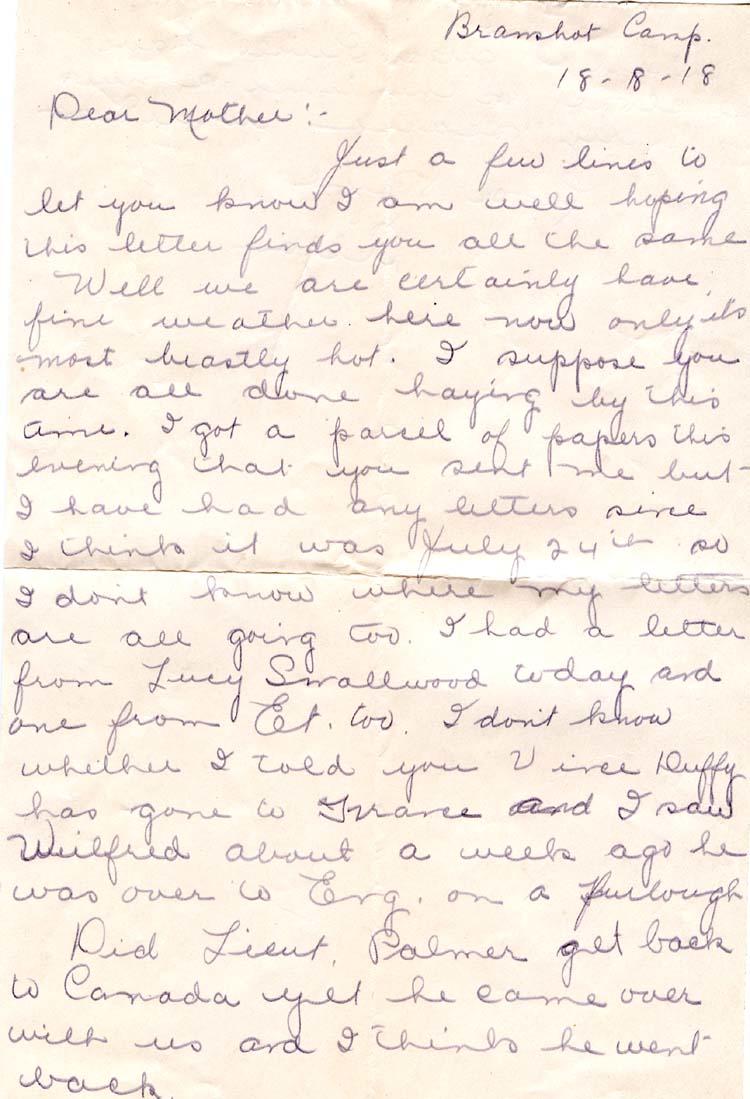 Bramshot Camp.
18-8-18
Dear Mother:-
Just a few lines to
let you know I am well hoping
this letter finds you all the same
Well we are certainly have
fine weather here now only its
most beastly hot. I suppose you
are all done haying by this
time. I got a parcel of papers this
evening that you sent me but
I have had any letters since
I think it was July 24th so
I dont know where my letters
are all going too. I had a letter
from Lucy Smallwood today and
one from Et. too. I don't know
whether I told you Vince Duffy
has gone to France and I saw
Wilfred about a week ago he
was over to Eng. on a furlough
Did Lieut. Palmer get back
to Canada yet he came over
with us and I think he went
back.